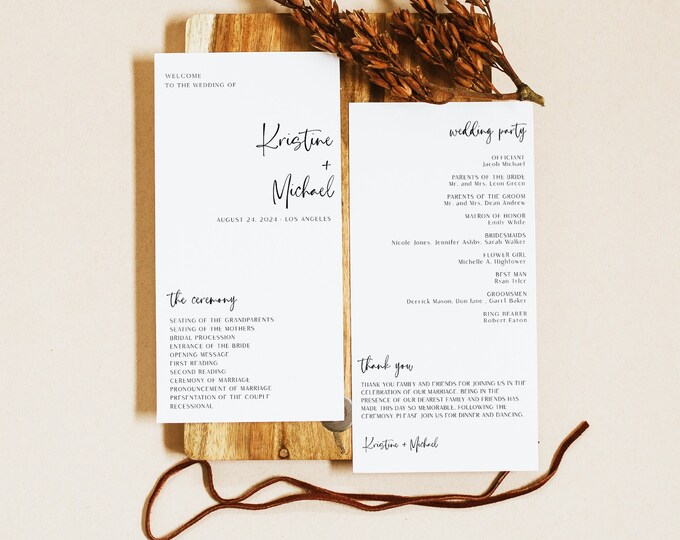 WELCOME
TO THE WEDDING OF
Kristine
+
Michael
AUGUST 24, 2024 - LOS ANGELES
the ceremony
SEATING OF THE GRANDPARENTS
SEATING OF THE MOTHERS
BRIDAL PROCESSION
ENTRANCE OF THE BRIDE
OPENING MESSAGE
FIRST READING
SECOND READING
CEREMONY OF MARRIAGE
PRONOUNCEMENT OF MARRIAGE
PRESENTATION OF THE COUPLE
RECESSIONAL
wedding party
OFFICIANT
Jacob Michael
PARENTS OF THE BRIDE
Mr. and Mrs. Leon Green
PARENTS OF THE GROOM
Mr. and Mrs. Dean Andrew
MATRON OF HONOR
Emily White
BRIDESMAIDS
Nicole Jones, Jennifer Ashby, Sarah Walker
FLOWER GIRL
Michelle A. Hightower
BEST MAN
Ryan Tyler
GROOMSMEN
Derrick Mason, Don Jane , Garrl Baker
RING BEARER
Robert Eaton
thank you
THANK YOU FAMILY AND FRIENDS FOR JOINING US IN THE
CELEBRATION OF OUR MARRIAGE. BEING IN THE
PRESENCE OF OUR DEAREST FAMILY AND FRIENDS HAS
MADE THIS DAY SO MEMORABLE. FOLLOWING THE
CEREMONY PLEASE JOIN US FOR DINNER AND DANCING.
Kristine + Michael